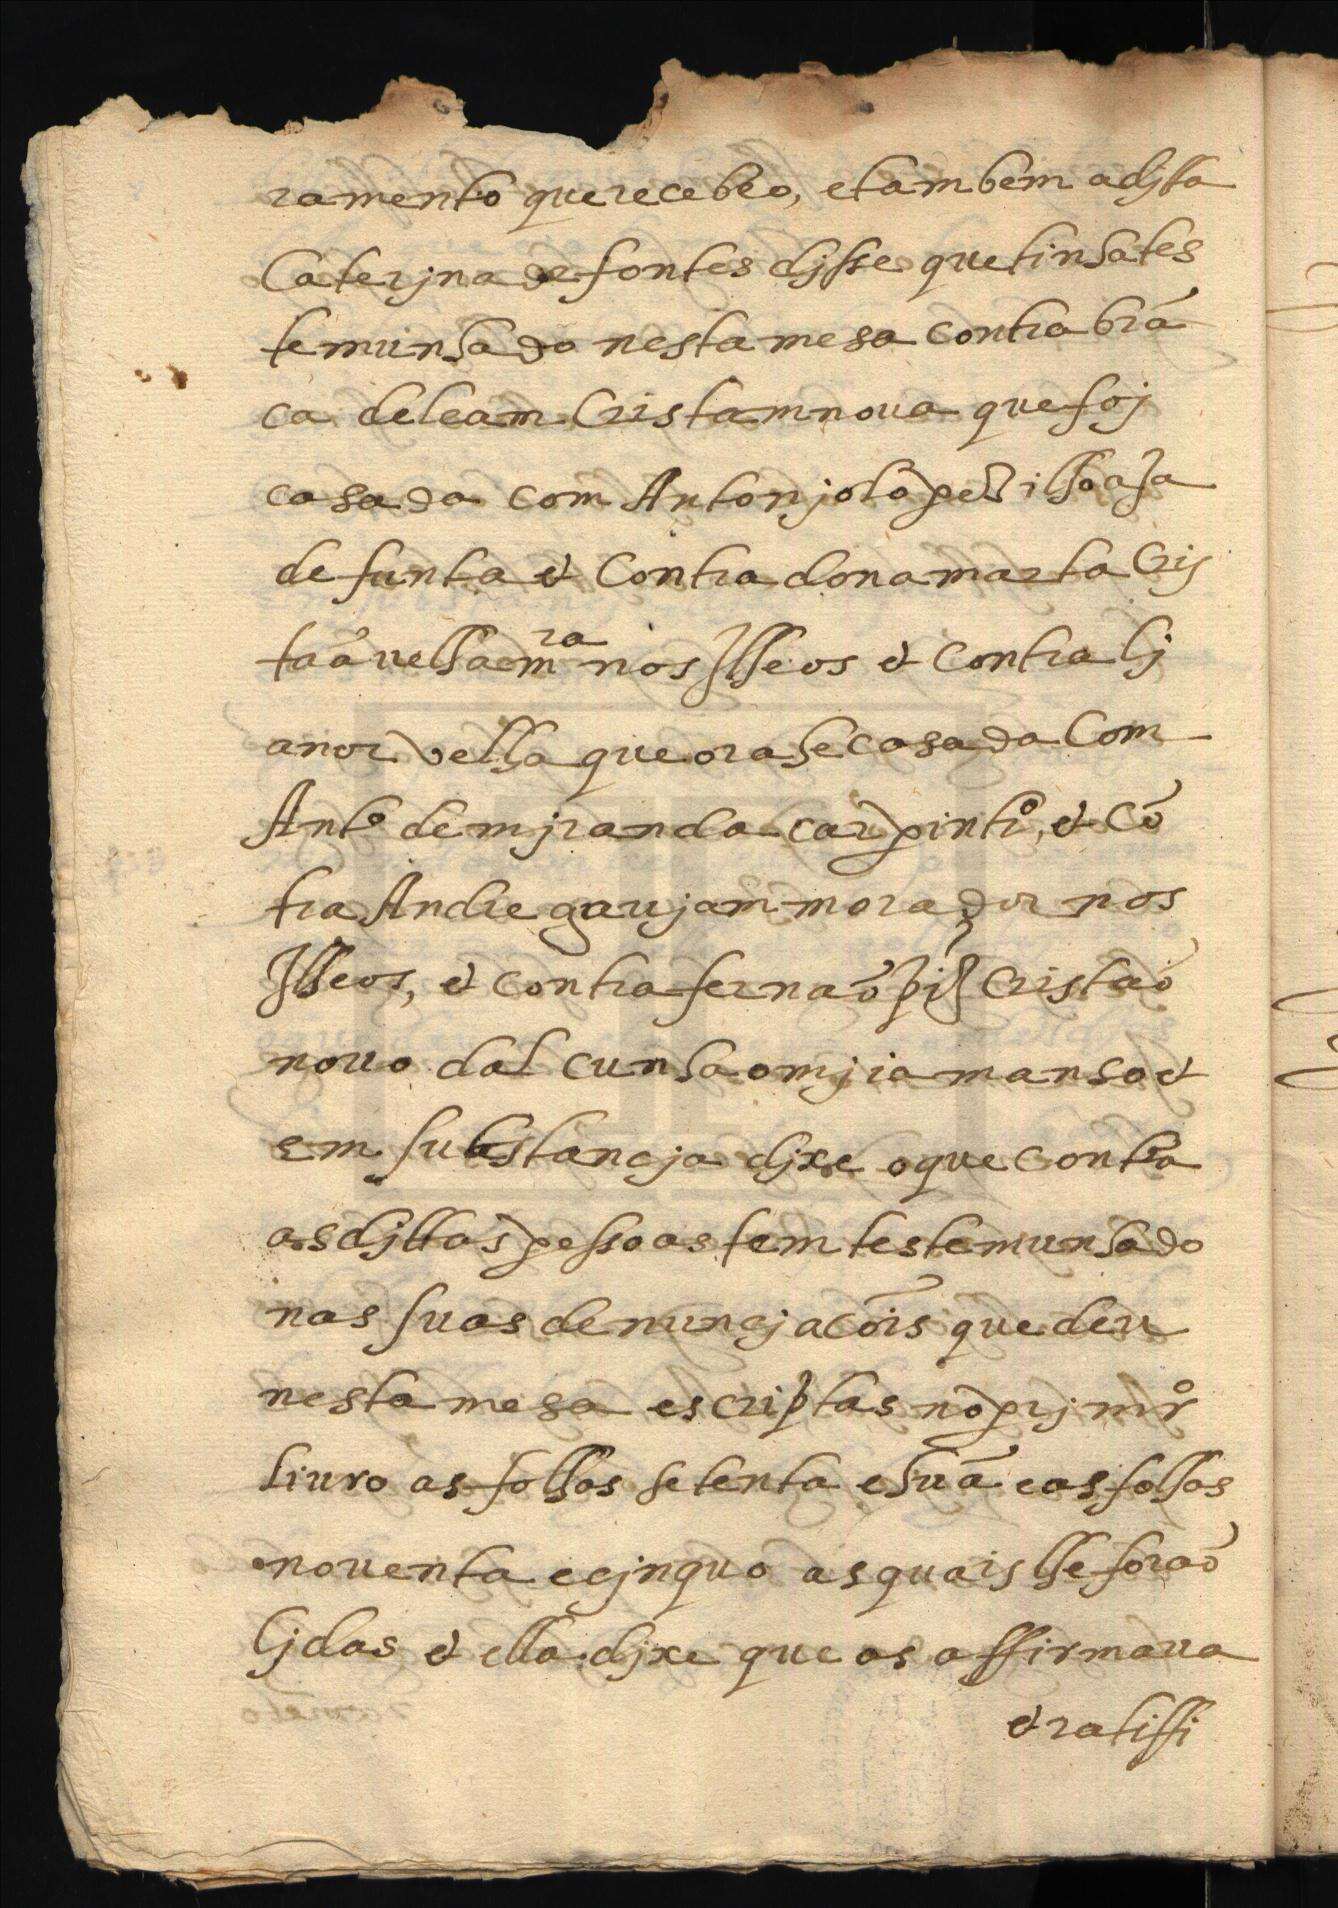 ramento que recebeo, e tambem a djtta
Caterjna de fontes djsse que tinha tes
temunhado nesta mesa contra brã
ca de leam Cristam noua que foj
casada com Antonjo lopez ilhoa ja
defunta & Contra dona marta Cris
taã velha mra nos Jlheos & contra lj
anor velha que ora he casada Com
Anto de mjranda carpintro, & cõ
tra Andre gaujam morador nos
Jlheos, & contra fernaõ piz Cristaõ
nouo dal cunha o mjja manso &
em substancja djxe o que contra
as djttas pessoas tem testemunhado
nas suas denuncjacõis que deu
nesta mesa escriptas no prjmro
liuro as folhas setenta e huã e as folhas
nouenta e cjnquo as quais lhe foraõ
ljdas & ella djxe que as affirmaua
& ratiffi